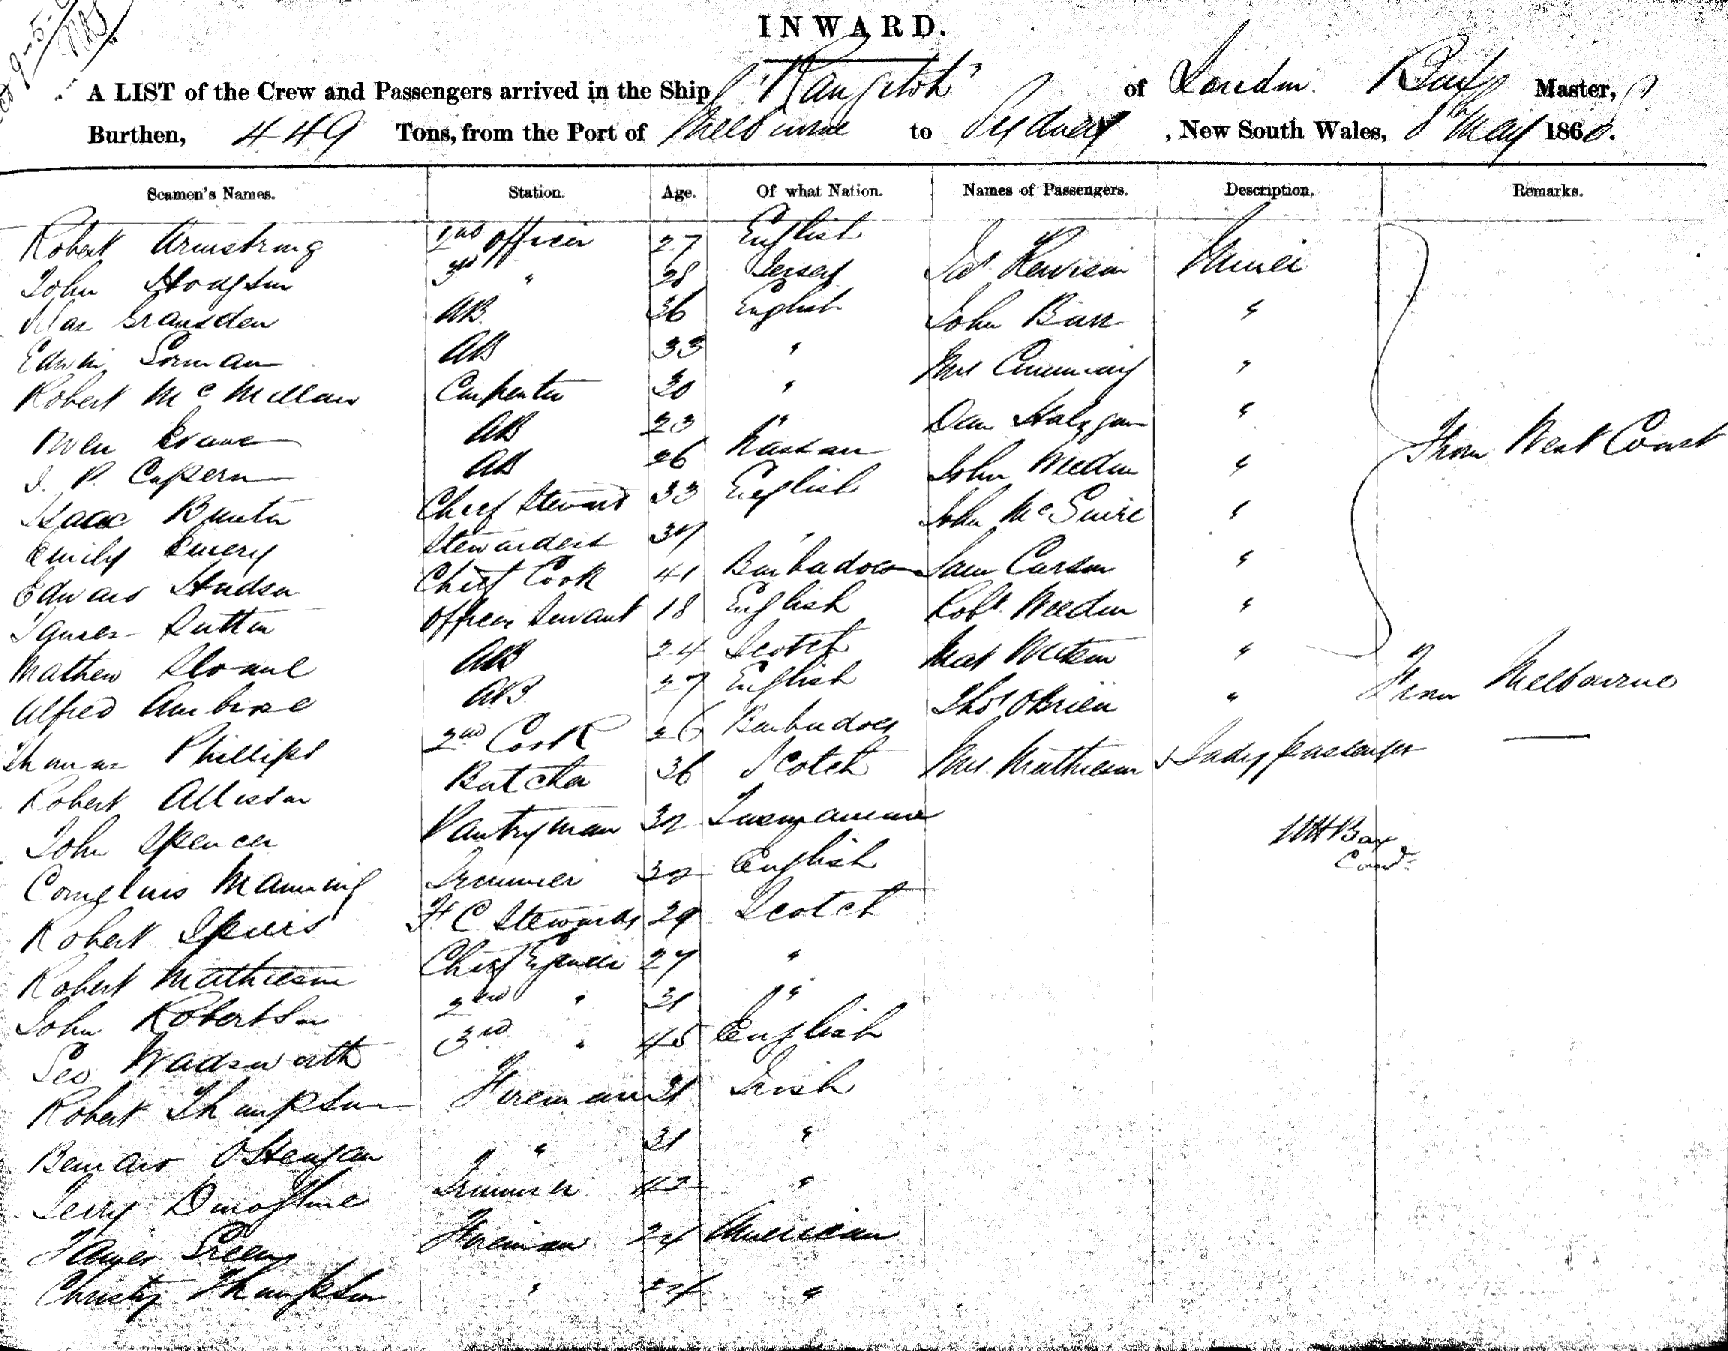 INWARD.
A LIST of the Crew and Passengers arrived in the Ship "Rangitoto" of London Master,
Burthen, 449 Tons, from the Port of Melbourne to Sydney, New South Wales, 8th May 186
Seamen's Names. Station. Age. Of what Nation. Names of Passengers. Description. Remarks.
Robert Armstrong 2nd Officer 27 English
John Hodgson 3rd " 28 Jersey Jas Hewison Miner
Gransden AB 36 English John Barr "
Edwin Gorman AB 33 " Mrs Cumming "
Robert McMillan Carpenter 30 " Dan "
Owen Evans AB 23 " John Weedon "
J. P. Capern AB 26 Russian John McGuire "
Isaac Bunter Chief Steward 33 English Sam Carson "
Emily Emery Stewardess 37 " Robt Weedon "
Edward Hudson Chief Cook 41 Barbadoes Mat Watson "
James Sutton Officers Servant 18 English Thos OBrien "
Mathew Sloane AB 24 Scotch Mrs Mathieson Lady passenger
Alfred Ambrose AB 27 English
Thomas Phillips 2nd Cook 26 Barbadoes
Robert Allison Butcher 36 Scotch
John Spencer Pantryman 32 Tasmanian
Cornelius Manning Trimmer 32 English
Robert Speirs F C Stewards 29 Scotch
Robert Mathieson Chief Engineer 27 "
John Robertson 2nd " 31 "
Geo Wadsworth 3rd " 45 English
Robert Thompson Fireman 31 Irish
Bernard " 31 "
Jerry Trimmer 42 "
James Green Fireman 24 American
Christy Thompson " 24 "
From West Coast
From Melbourne